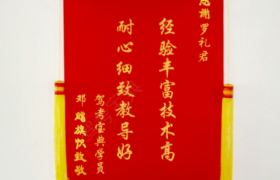 感谢罗礼君
经验丰富技术高
耐心细致教导好
驾考宝典学员
邓 旗 致敬